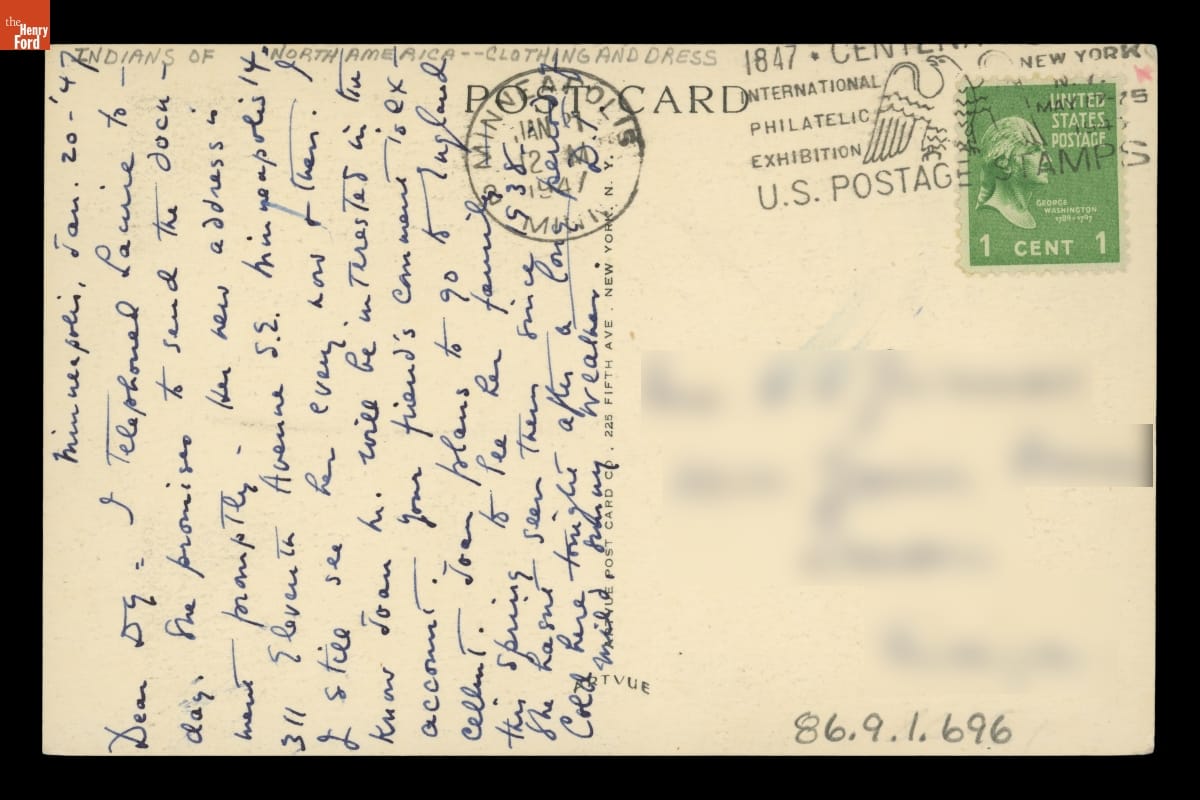 the
Henry
Ford
INDIANS OF NORTH AMERICA--CLOTHING AND DRESS
POST CARD
MINNEAPOLIS
JAN
1947
MINN
1847 • CENTEN
INTERNATIONAL
PHILATELIC
EXHIBITION
U.S. POSTAGE STAMPS
NEW YORK
N.Y.
MAY 17-25
UNITED
STATES
POSTAGE
GEORGE
WASHINGTON
1789-1797
1 CENT 1
Minneapolis, Jan. 20-'47
Dear DG = I telephoned Laurie to-
day. She promises to send the docu-
ment promptly - Her new address is
311 Eleventh Avenue S.E. Minneapolis 14
I still see her every now & then. I
know Joan h. will be interested in the
account. Your friend's comment is ex
cellent. Joan plans to go to England
this spring to see her family
She hasn't seen them since 1938-
Cold here tonight after a long period of
mild sunny weather.
ARTVUE POST CARD CO. 225 FIFTH AVE. NEW YORK, N.Y.
ARTVUE
86.9.1.696